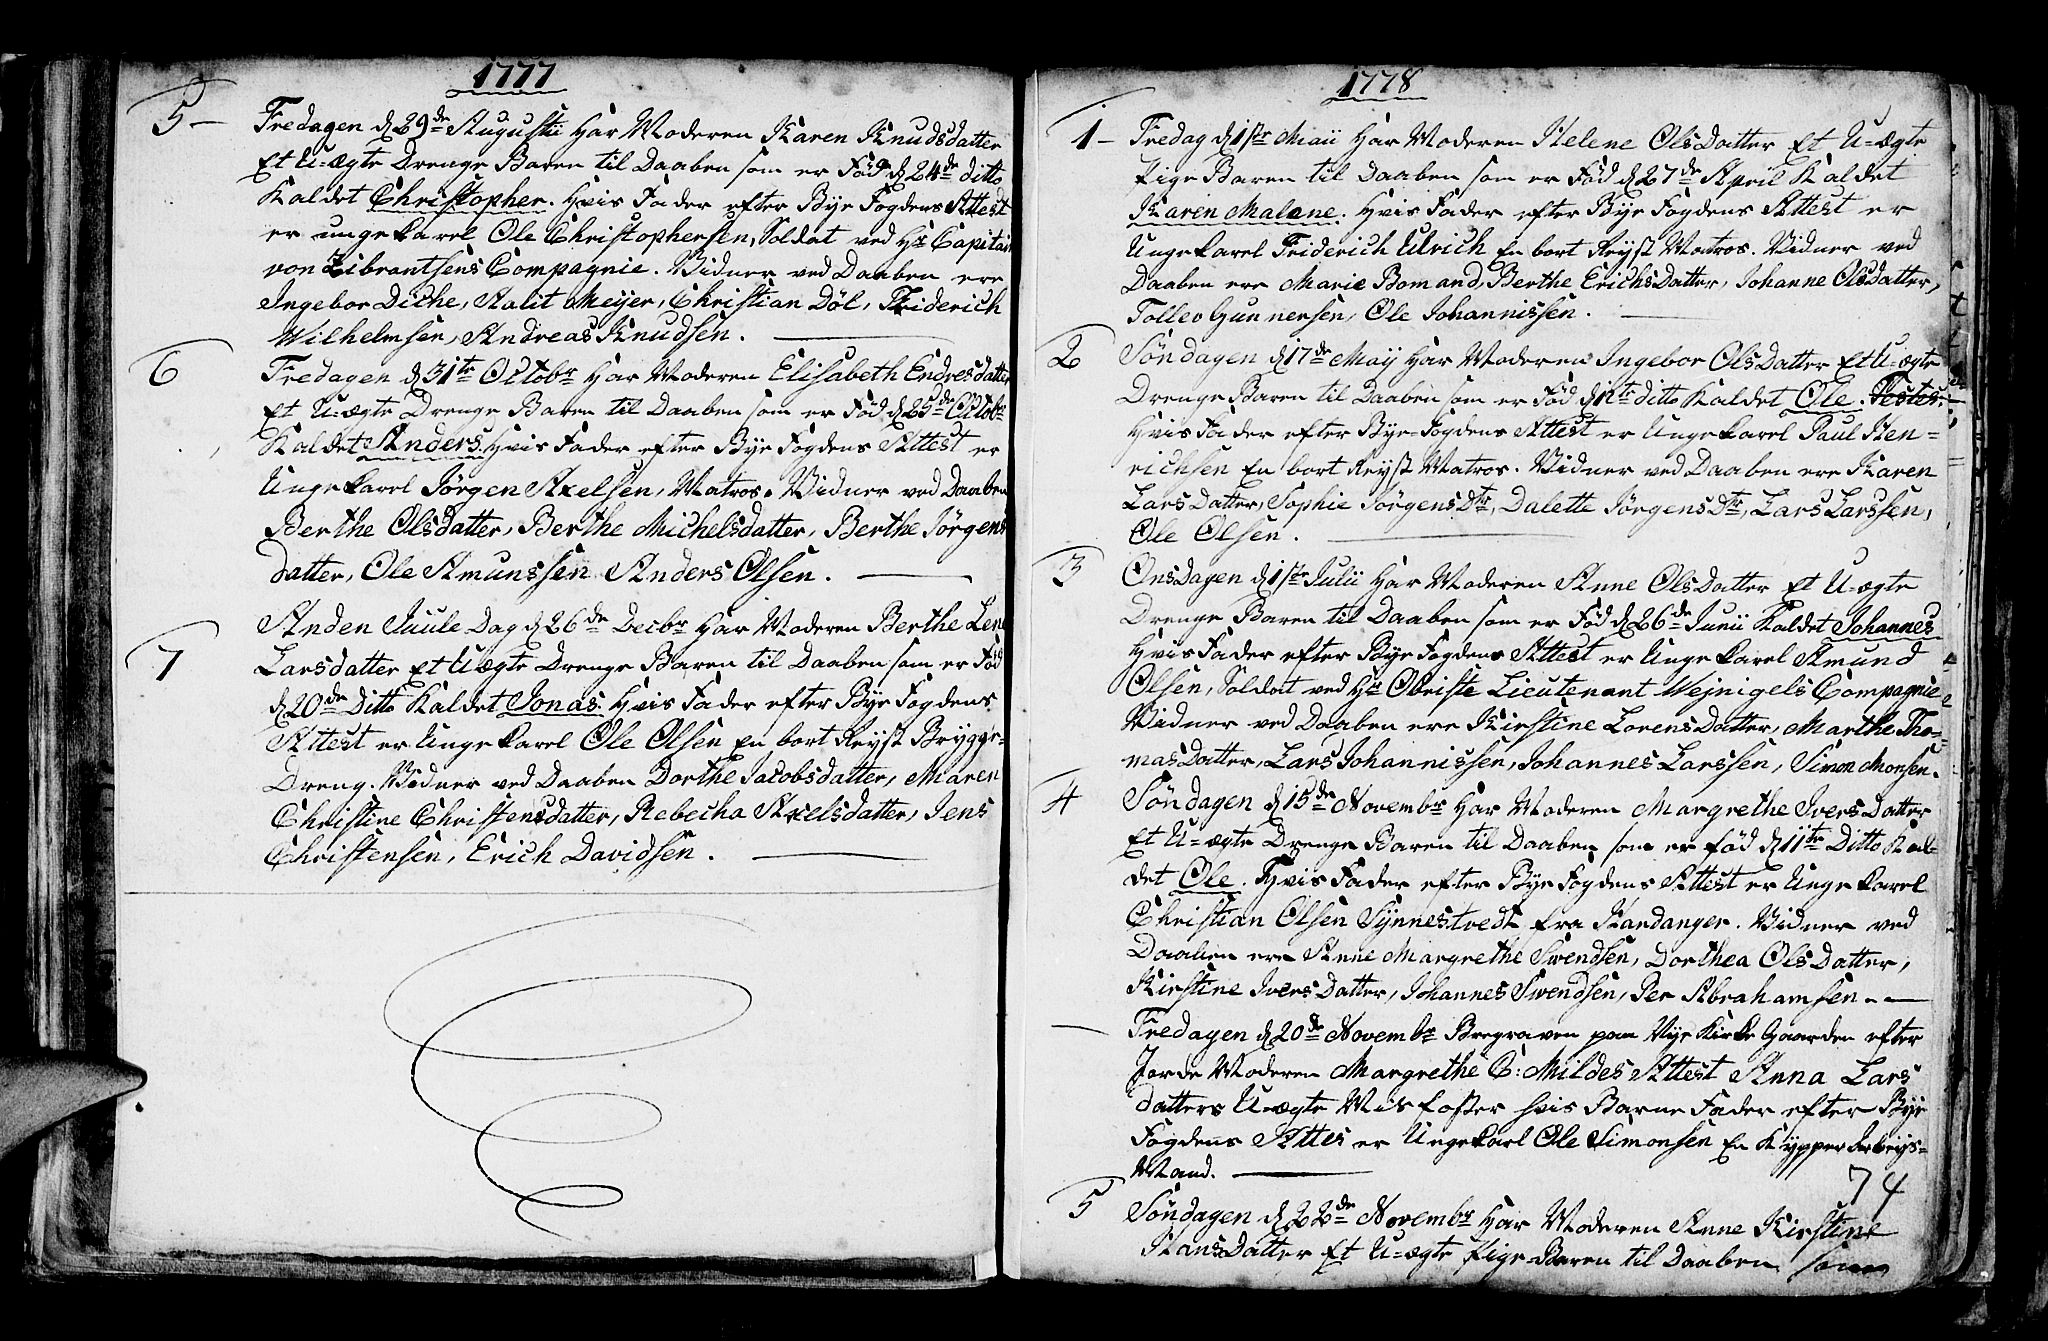 1777
5 — Fredagen d 29de Augustii Har Moderen Karen Knudsdatter
Et U-ægte Drenge Baren til Daaben som er Fød d 24de ditto
Kaldet Christopher. Hvis Fader efter Bye Fogdens Attest
er ungekarel Ole Christophersen, Soldat ved Hr Capitain
von Zibrantsens Compagnie. Vidner ved Daaben ere
Ingebor Diche, Aalit Meyer, Christian Döl, Friderich
Wilhelmsen, Andreas Knudsen.
6 Fredagen d 31tr Octobr Har Moderen Elisabeth Endresdatter
Et U-ægte Drenge Baren til Daaben som er Fød d 25de Octobr
Kaldet Anders. Hvis Fader efter Bye Fogdens Attest er
Ungekarel Jörgen Axelsen, Matros. Vidner ved Daaben
Berthe Olsdatter, Berthe Michelsdatter, Berthe Jörgens
datter, Ole Amunssen Anders Olsen.
7 Anden Juule Dag d 26de Decbr Har Moderen Berthe Lene
Larsdatter Et Uægte Drenge Baren til Daaben som er Fød
d 20de Ditto Kaldet Jonas. Hvis Fader efter Bye Fogdens
Attest er Ungekarel Ole Olsen En bort Reyst Brygge-
Dreng. Vidner ved Daaben Dorthe Jacobsdatter, Maren
Christine Christensdatter, Rebecha Axelsdatter, Jens
Christensen, Erich Davidsen.
1778
1 — Fredag d 1str Maii Har Moderen Helene OlsDatter Et U-ægte
Pige Baren til Daaben som er Fød d 27de April Kaldet
Karen Malene. Hvis Fader efter Bye Fogdens Attest er
Ungekarel Friderich Ulrich En bort Reyst Matros. Vidner ved
Daaben ere Marie Bomand, Berthe ErichsDatter, Johanne Olsdatter,
Tollev Gunnersen, Ole Johannissen.
2 Søndagen d 17de May Har Moderen Ingebor OlsDatter Et U-ægte
Drenge Baren til Daaben som er Fød d 12tr ditto Kaldet Ole.
Hvis Fader efter Bye-Fogdens Attest er Ungekarel Paul Hen-
richsen En bort Reyst Matros. Vidner ved Daaben ere Karen
LarsDatter, Sophie JörgensDtr, Dalette JörgensDtr, Lars Larssen,
Ole Olsen.
3 OnsDagen d 1str Julii Har Moderen Anne OlsDatter Et U-ægte
Drenge Baren til Daaben som er Fød d 26de Junii Kaldet Johannes
Hvis Fader efter Bye Fogdens Attest er Ungekarel Amund
Olsen, Soldat ved Hr Obriste Lieutenant Wejnigels Compagnie
Vidner ved Daaben ere Kirstine LorensDatter, Marthe Tho-
masDatter, Lars Johannissen, Johannes Larssen, Simon Monsen.
4 Søndagen d 15de Novembr Har Moderen Margrethe IversDatter
Et U-ægte Drenge Baren til Daaben som er fød d 11tr Ditto Kal-
det Ole. Hvis Fader efter Bye Fogdens Attest er Ungekarel
Christian Olsen Synnestvedt fra Hardanger. Vidner ved
Daaben ere Anne Margrethe Swendsen, Dorthea OlsDatter,
Kirstine IversDatter, Johannes Swendsen, Per Abrahamsen. —
— Fredagen d 20de Novembr Begraven paa Nye Kirke Gaarden efter
Jorde Moderen Margrethe C: Mildes Attest Anna Lars
datters U-ægte Misfoster hvis Barne Fader efter Bye
Fogdens Attes er Ungekarl Ole Simonsen En Kypper Arbeyds-
Mand.
74
5 Søndagen d 22de Novembr Har Moderen Anne Kirstine
HansDatter Et U-ægte Pige Baren til Daaben som